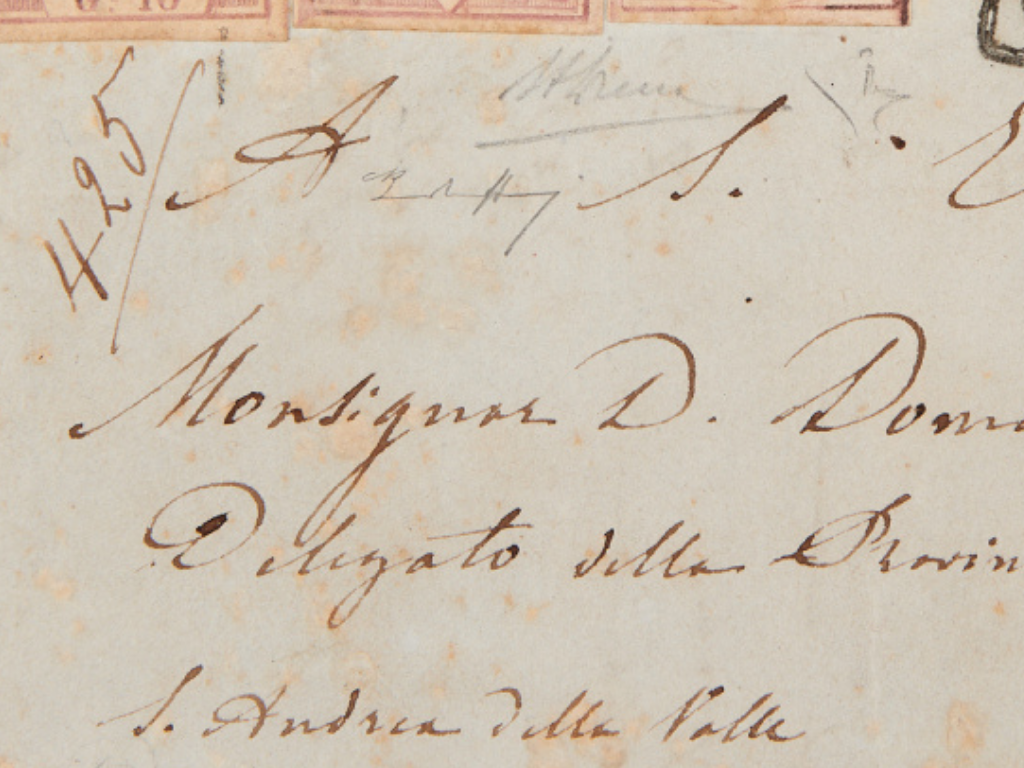 G. 10
425/
A S. E
Monsignor D. Dom
Delegato della Provin
S. Andrea della Valle